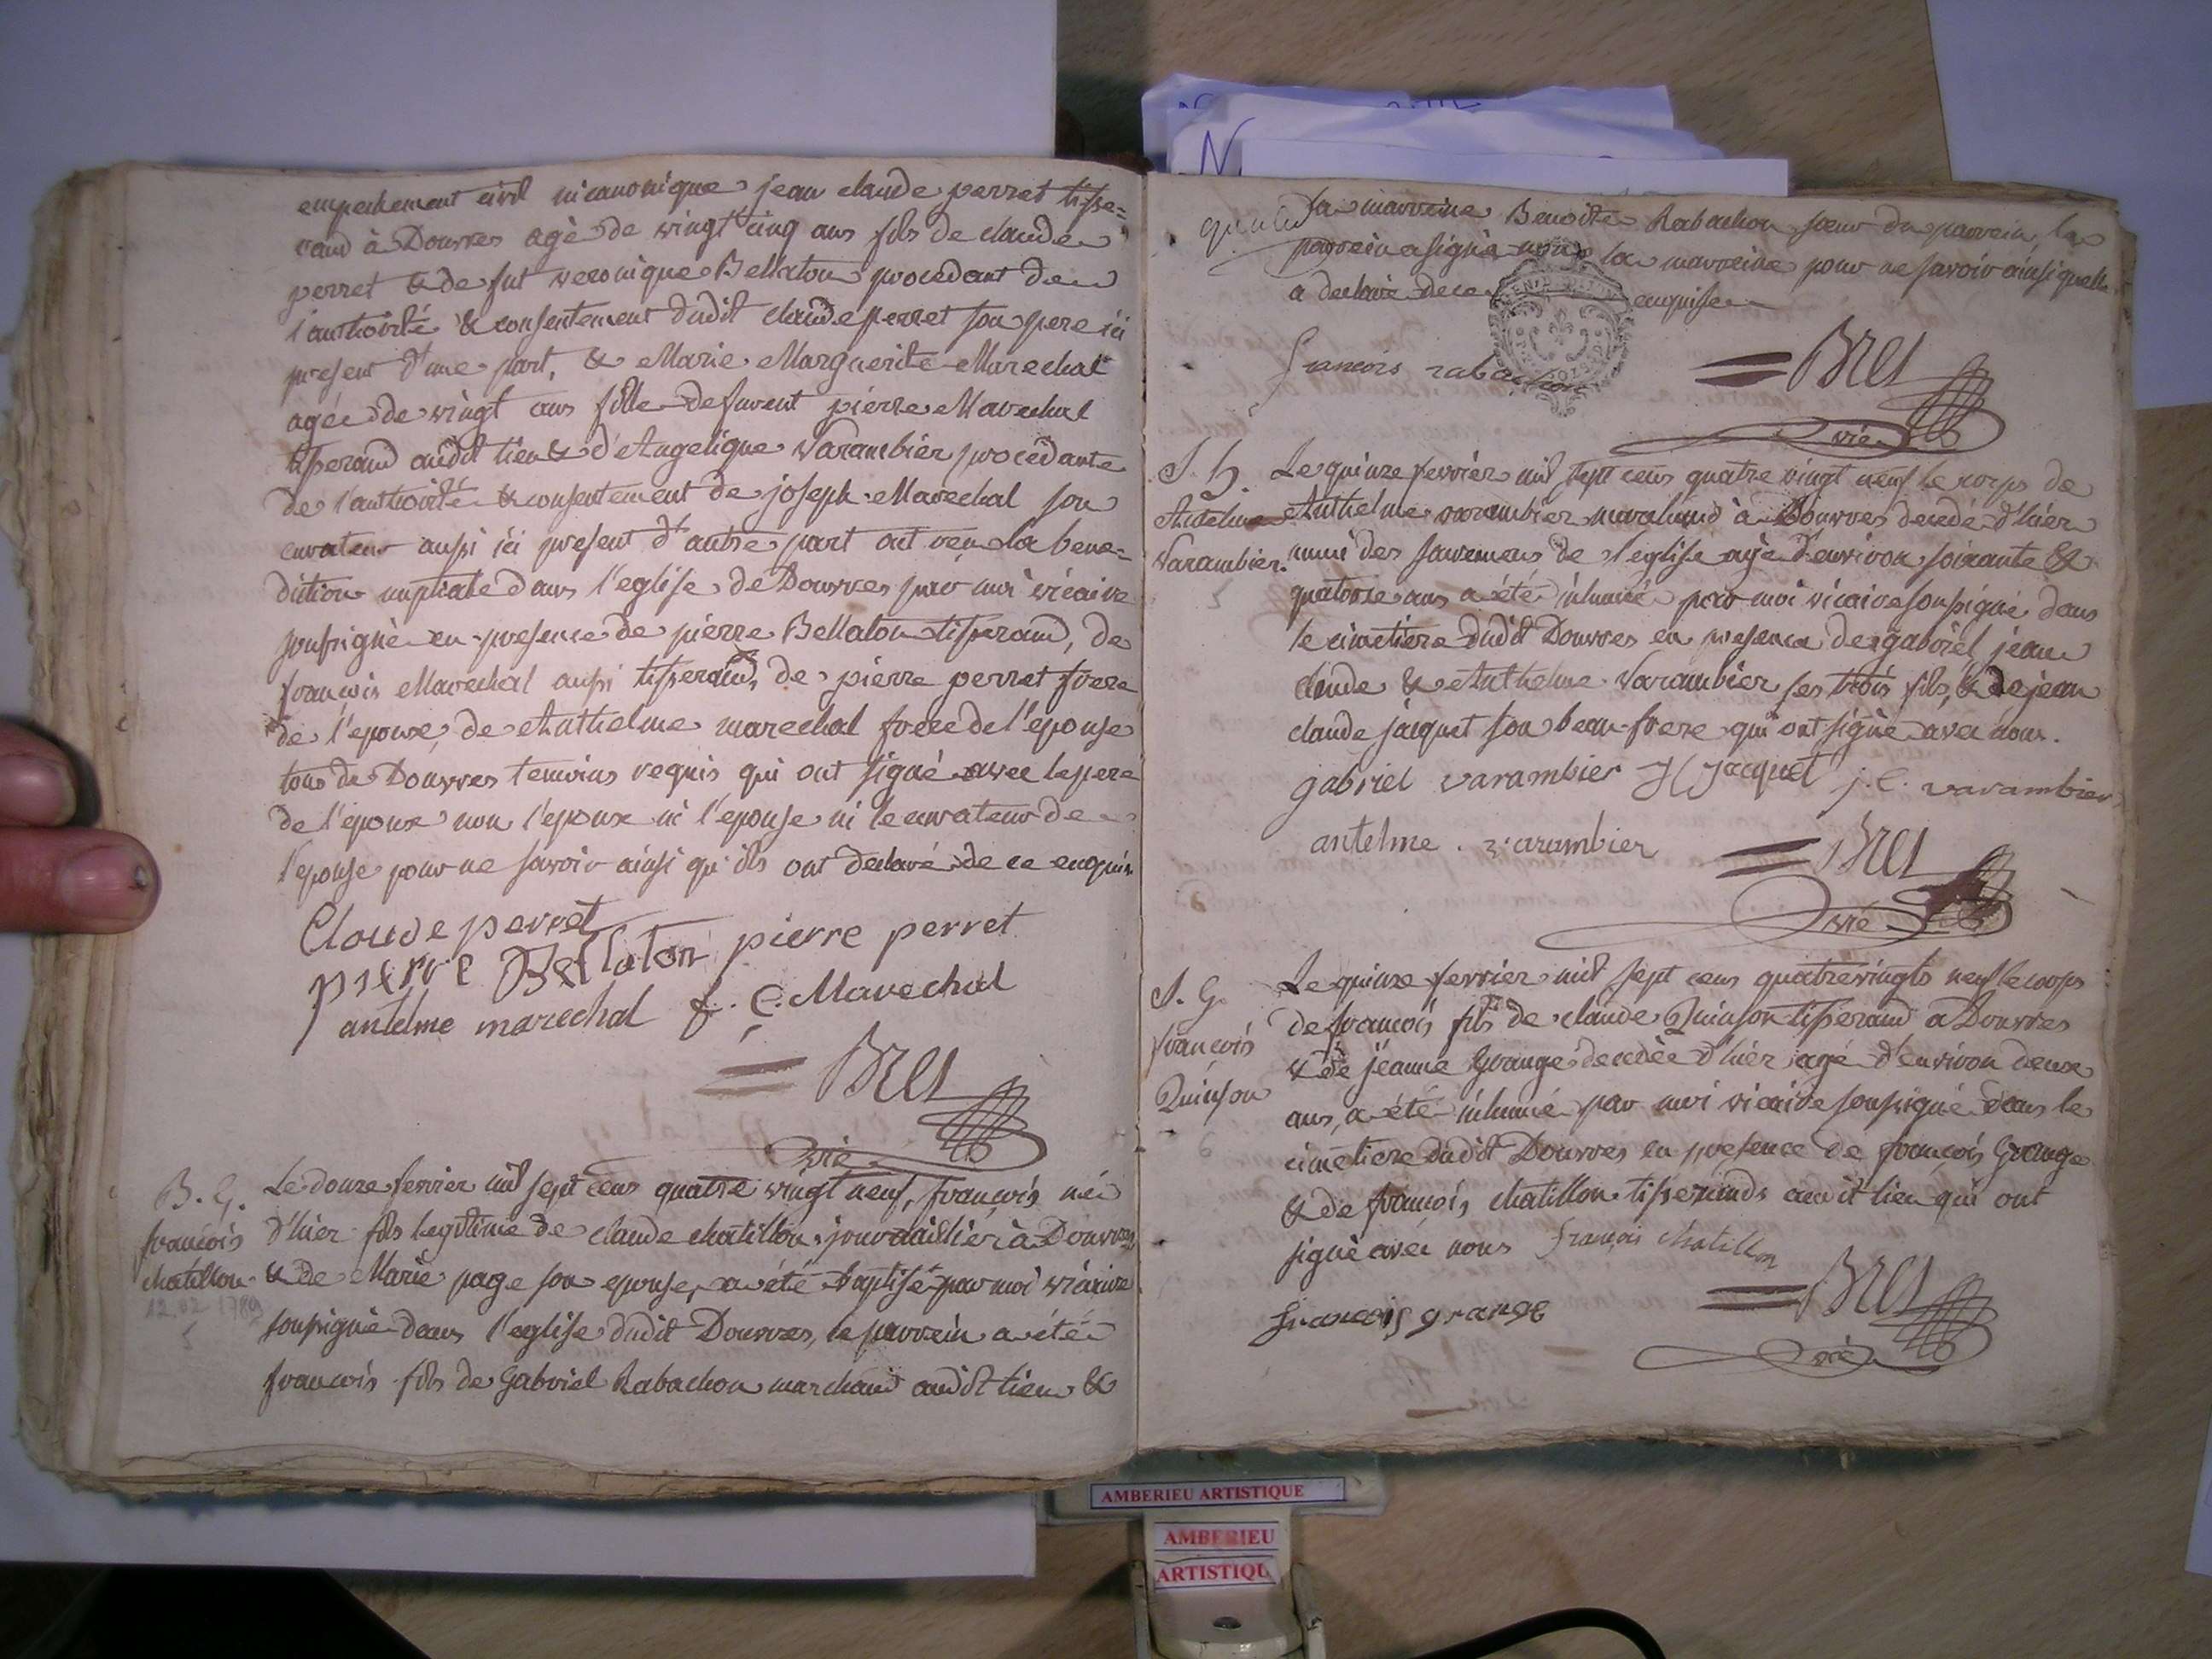 empechement civil ni canonique jean claude perret tisse=
rand à Douvres agè de vingt cinq ans fils de claude
perret & de fut veronique Bellaton procedant de
l'authorité & consentement dudit claude perret son pere ici
present d'une part, & Marie Marguerite Marechal
agée de vingt ans fille defunt pierre Marechal
tisserand audit lieu & d'Angelique Varambier procedante
de l'authorité & consentement de joseph Marechal son
curateur aussi ici present d'autre part ont recu la bene=
diction nuptiale dans l'eglise de Douvres par moi vicaire
soussigné en presence de pierre Bellaton tisserand, de
francois Marechal aussi tisserand, de pierre perret frere
de l'epoux, de Anthelme marechal frere de l'epouse
tous de Douvres temoins requis qui ont signé avec le pere
de l'epoux non l'epoux ni l'epouse ni le curateur de
l'epouse pour ne savoir ainsi qu'ils ont declaré de ce enquis
Claude perret
pierre Bellaton pierre perret
antelme marechal f. C. Marechal
= Bret
vic
B. G.
francois
chatillon
12.02.1789
Le douze fevrier mil sept cens quatre vingt neuf, francois né
d'hier fils legitime de claude chatillon journaillier à Douvres
& de Marie page son epouse, a été baptisé par moi vicaire
soussigné dans l'eglise dudit Douvres, le parrein a été
francois fils de Gabriel Rabachon marchand audit lieu &
la marreine Benoite Rabachon soeur du parrein, le
parrein a signé non la marreine pour ne savoir ainsi quelle
a declaré de ce enquise
francois rabachon
= Bret
vic
S. h.
Antelme
Varambier.
Le quinze fevrier mil sept cens quatre vingt neuf le corps de
Anthelme varambier marchand à Douvres decedé d'hier
muni des sacremens de l'eglise agé d'environ soixante &
quatorze ans a été inhumé par moi vicaire soussigné dans
le cimetiere dudit Douvres en presence de gabriel jean
claude & Anthelme Varambier ses trois fils, & de jean
claude jacquet son beau-frere qui ont signé avec nous.
gabriel varambier JC Jacquet j. C. varambier
antelme . varambier
= Bret
vic
S. G.
francois
Quinson
Le quinze fevrier mil sept cens quatrevingts neuf le corps
de francois fils de claude Quinson tisserand a Douvres
& de jeanne Grange decedée d'hier agé d'environ deux
ans, a été inhumé par moi vicaire soussigné dans le
cimetiere dudit Douvres en presence de francois Grange
& de francois chatillon tisserands audit lieu qui ont
signé avec nous francois chatillon
francois grange
= Bret
vic
AMBERIEU ARTISTIQUE
AMBERIEU
ARTISTIQU